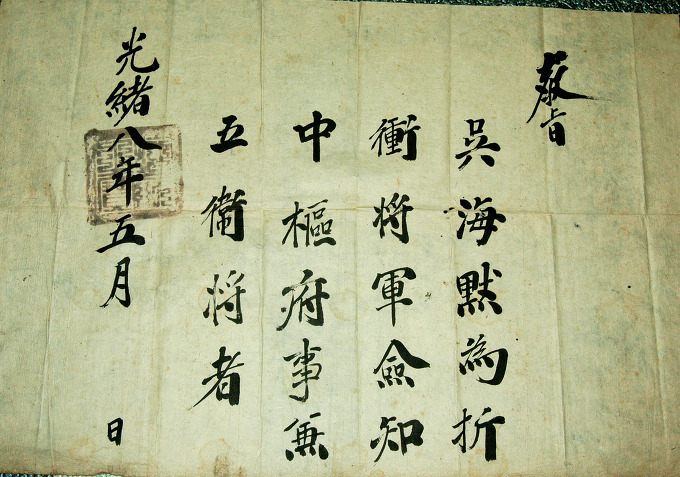 敎旨
吳海默為折
衝将軍僉知
中樞府事兼
五衛将者
光緒八年五月 日